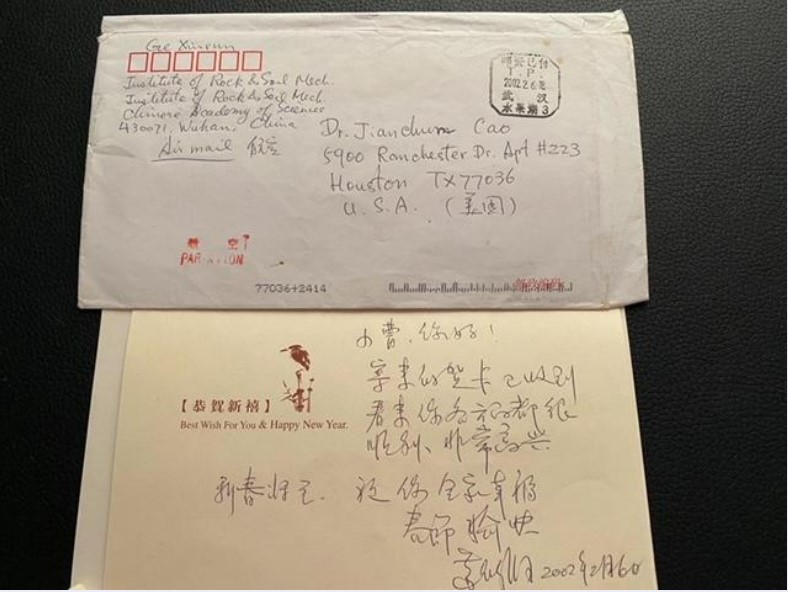 Ge Xiurun
Institute of Rock & Soil Mech.
Institute of Rock & Soil Mech.
Chinese Academy of Sciences
430071, Wuhan, China
Air mail 航空
国资已付
T.P.
2002.2.6.
武汉
水果湖3
Dr. Jianchun Cao
5900 Ranchester Dr. Apt #223
Houston TX77036
U.S.A. (美国)
航空
PAR AVION
77036+2414
邮政编码
小曹,你好!
寄来的贺卡已收到
看来你各方面都很
顺利、非常高兴
【恭賀新禧】
Best Wish For You & Happy New Year.
新春将至. 祝你全家幸福
春节愉快
2002年2月6日